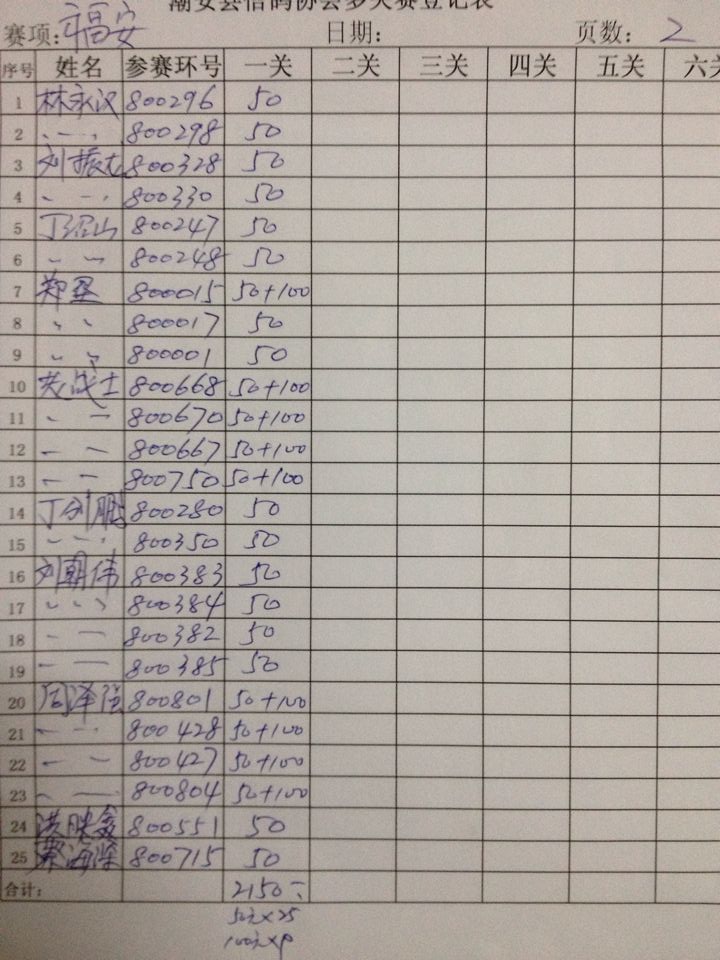 潮安县信鸽协会多关赛登记表
赛项: 福安 日期: 页数: 2
序号 姓名 参赛环号 一关 二关 三关 四关 五关 六关
1 林永汉 800296 50
2 〃 800298 50
3 刘振 800328 50
4 〃 800330 50
5 丁绍山 800247 50
6 〃 800248 50
7 郑 800015 50+100
8 〃 800017 50
9 〃 800001 50
10 战士 800668 50+100
11 〃 800670 50+100
12 〃 800667 50+100
13 〃 800750 50+100
14 丁剑鹏 800280 50
15 〃 800350 50
16 刘朝伟 800383 50
17 〃 800384 50
18 〃 800382 50
19 〃 800385 50
20 周泽强 800801 50+100
21 〃 800428 50+100
22 〃 800427 50+100
23 〃 800804 50+100
24 洪映 800551 50
25 蔡海深 800715 50
合计: 2150
50元×25
100元×9